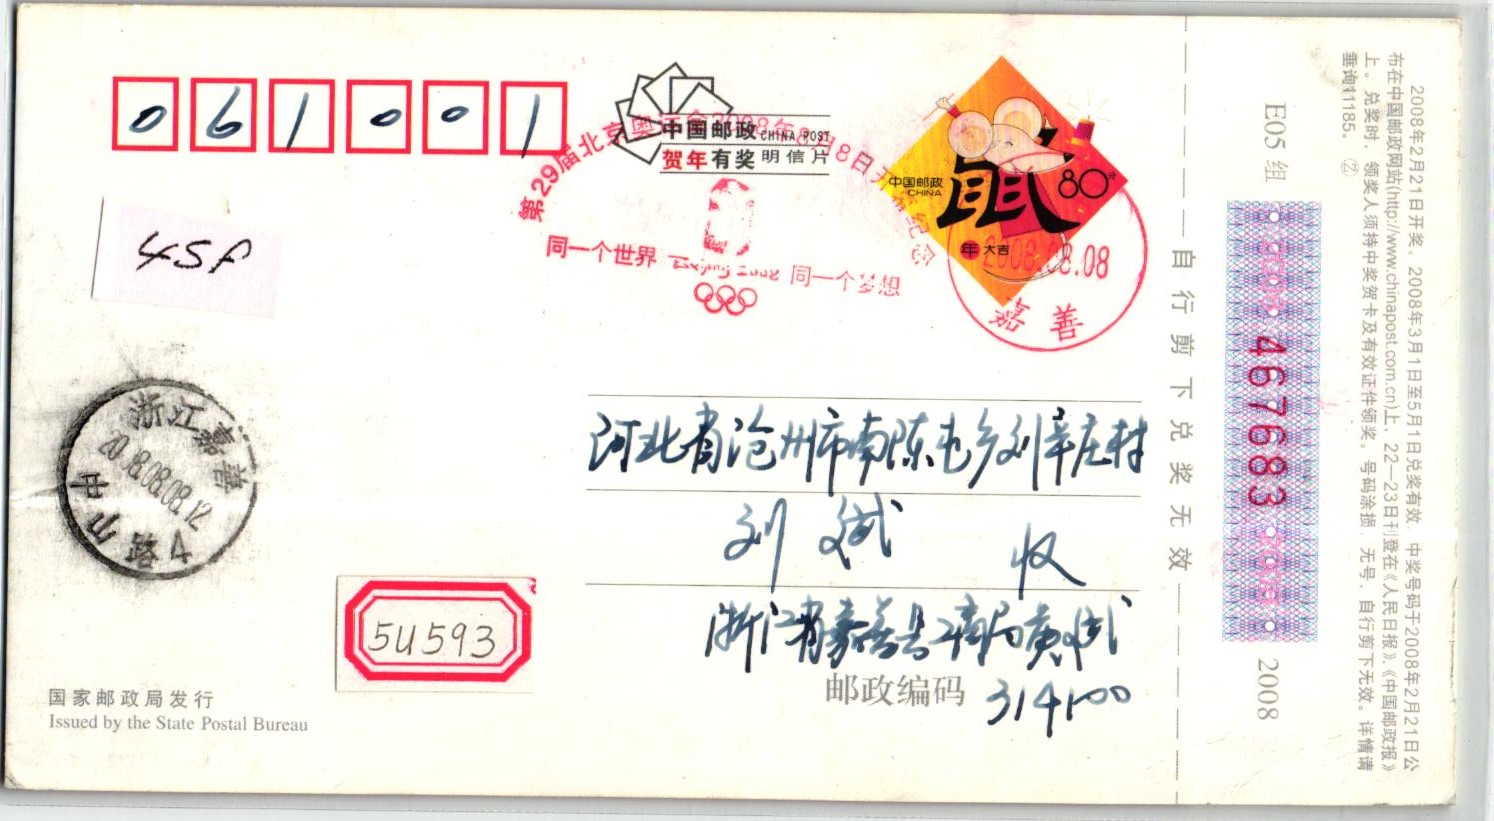 061001
中国邮政 CHINA POST
贺年有奖明信片
第29届北京奥运会2008年8月8日开幕纪念
同一个世界 Beijing 2008 同一个梦想
中国邮政
CHINA
鼠
80分
年大吉
2008.08.08
嘉善
45f
浙江嘉善
2008.08.08.12
中
河北省沧州市南陈屯乡刘辛庄村
刘斌 收
浙江省嘉善县工商局黄斌
邮政编码 314100
5U593
国家邮政局发行
Issued by the State Postal Bureau
自行剪下兑奖无效
E05 组
2008 467683 2008
2008
2008年2月21日开奖。2008年3月1日至5月1日兑奖有效。中奖号码于2008年2月21日公
布在中国邮政网站(http://www.chinapost.com.cn)上，22—23日刊登在《人民日报》、《中国邮政报》
上。兑奖时，领奖人须持中奖贺卡及有效证件领奖。号码涂损、无号、自行剪下无效。详情请
垂询11185。 ㉒